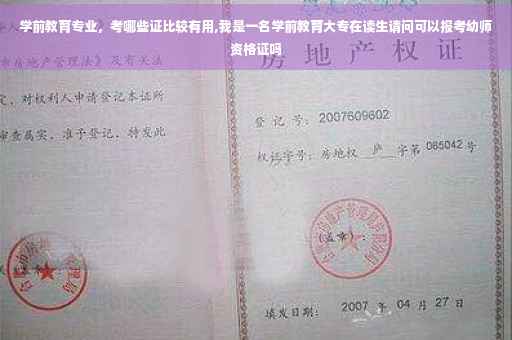 学前教育专业，考哪些证比较有用,我是一名学前教育大专在读生请问可以报考幼师
资格证吗
房地产权证
市房地产管理法》及有关法
定，对权利人申请登记本证所
审查属实，准予登记，特发此
登 记 号： 2007609602
权证字号：房地权 庐 字第 065042 号
(盖章)：
填发日期： 2007 年 04 月 27 日